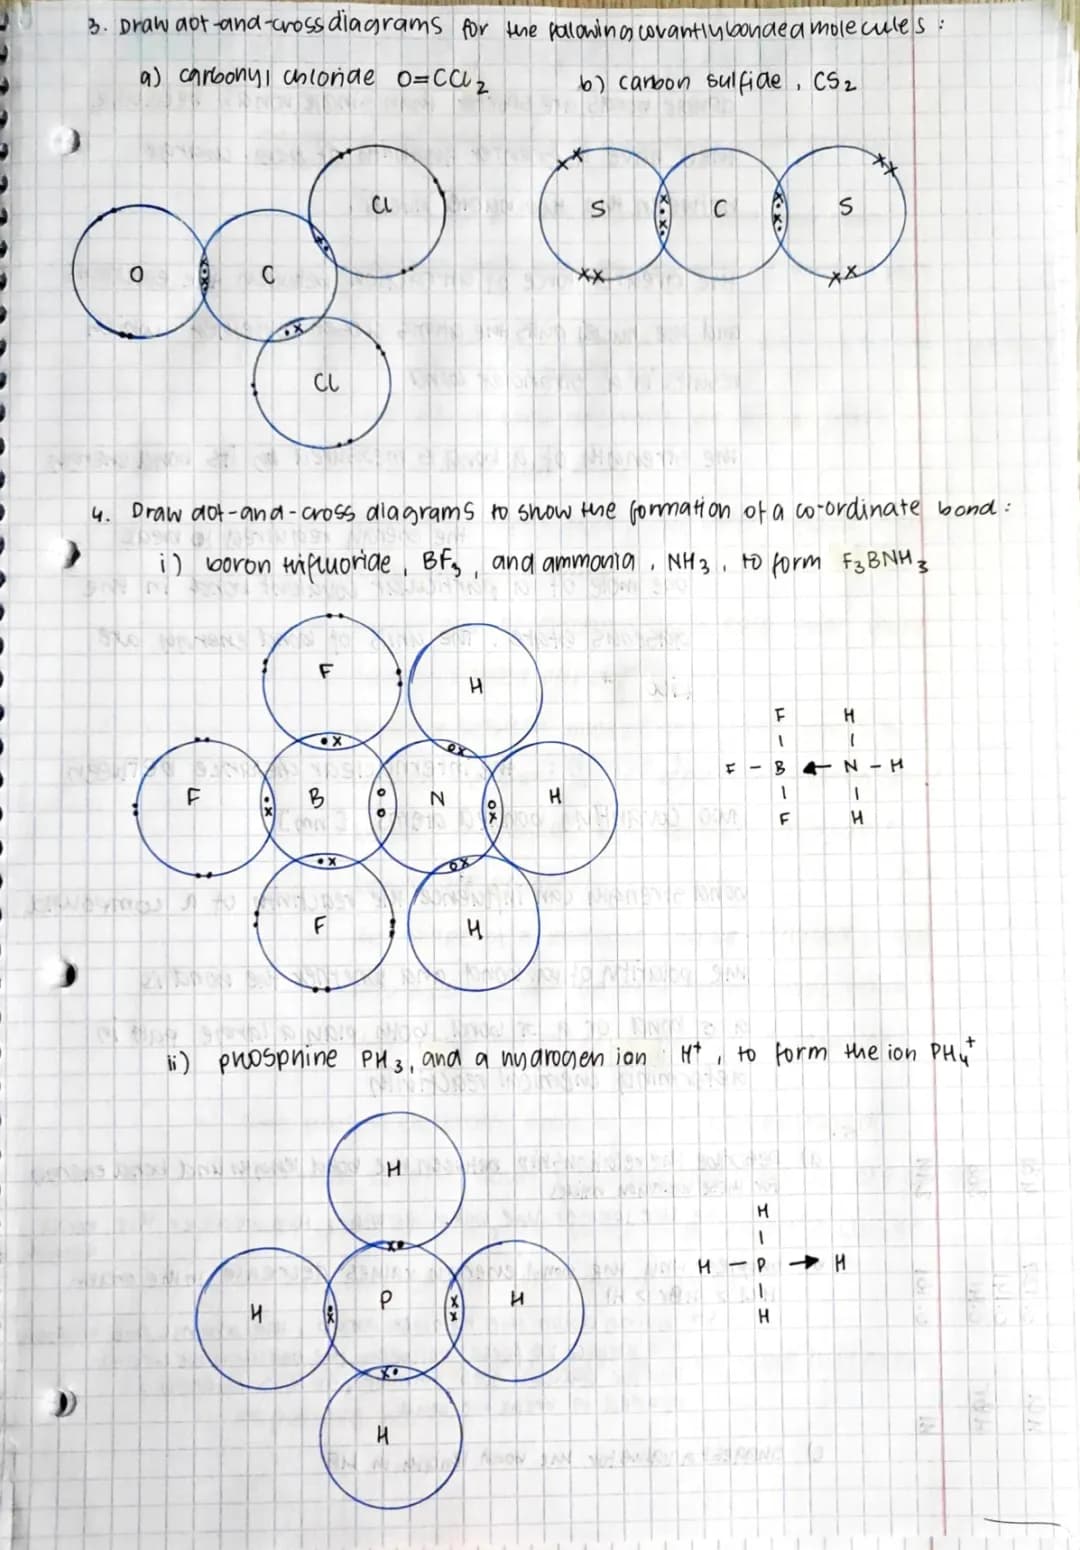 3. Draw dot-and-cross diagrams for the following covantly bonded molecules :
a) carbonyl chloride O=CCl2
b) carbon sulfide , CS2
Cl
O
C
Cl
S
C
S
4. Draw dot-and-cross diagrams to show the formation of a co-ordinate bond :
i) boron trifluoride , BF3 , and ammonia , NH3 , to form F3BNH3
F
H
F
B
N
H
F
H
F H
| |
F - B ← N - H
| |
F H
ii) phosphine PH3, and a hydrogen ion H+ , to form the ion PH4+
H
H
P
H
H
H
|
H - P → H
|
H